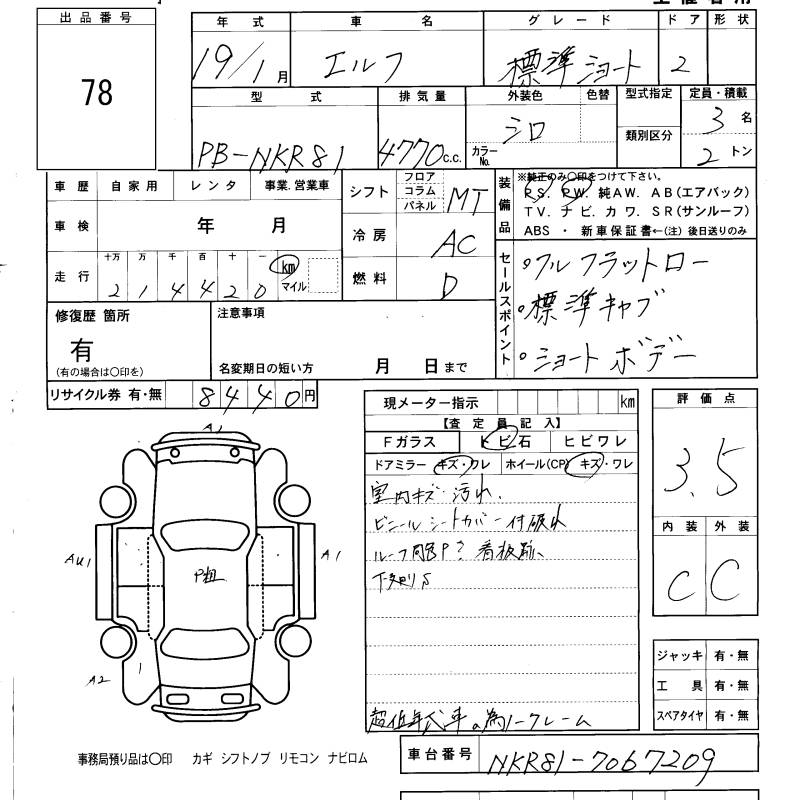 出品番号
78
年式 車名 グレード ドア 形状
19/1月 エルフ 標準ショート 2
型式 排気量 外装色 色替 型式指定 定員・積載
PB-NKR81 4770c.c. シロ カラーNo. 類別区分 3名
2トン
車歴 自家用 レンタ 事業.営業車
車検 年 月
走行 十万 万 千 百 十 一 km マイル
214420
シフト フロア コラム パネル MT
冷房 AC
燃料 D
装備品
※純正のみ○印をつけて下さい。
P.S. P.W. 純AW. AB(エアバック)
TV. ナビ. カワ. SR(サンルーフ)
ABS ・ 新車保証書←(注)後日送りのみ
セールスポイント
・フルフラットロー
・標準キャブ
・ショートボデー
修復歴 箇所
有
(有の場合は○印を)
注意事項
名変期日の短い方 月 日まで
リサイクル券 有・無 8440円
現メーター指示 km
【査定員記入】
Fガラス トビ石 ヒビワレ
ドアミラー キズ・ワレ ホイール(CP) キズ・ワレ
室内キズ・汚れ、
ビニールシートカバー付破れ
ルーフ 看板跡、
下廻りS
超低年式車の為ノークレーム
評価点
3.5
内装 外装
C C
A1
AU1
A1
A2
ジャッキ 有・無
工具 有・無
スペアタイヤ 有・無
事務局預り品は○印 カギ シフトノブ リモコン ナビロム
車台番号 NKR81-7067209